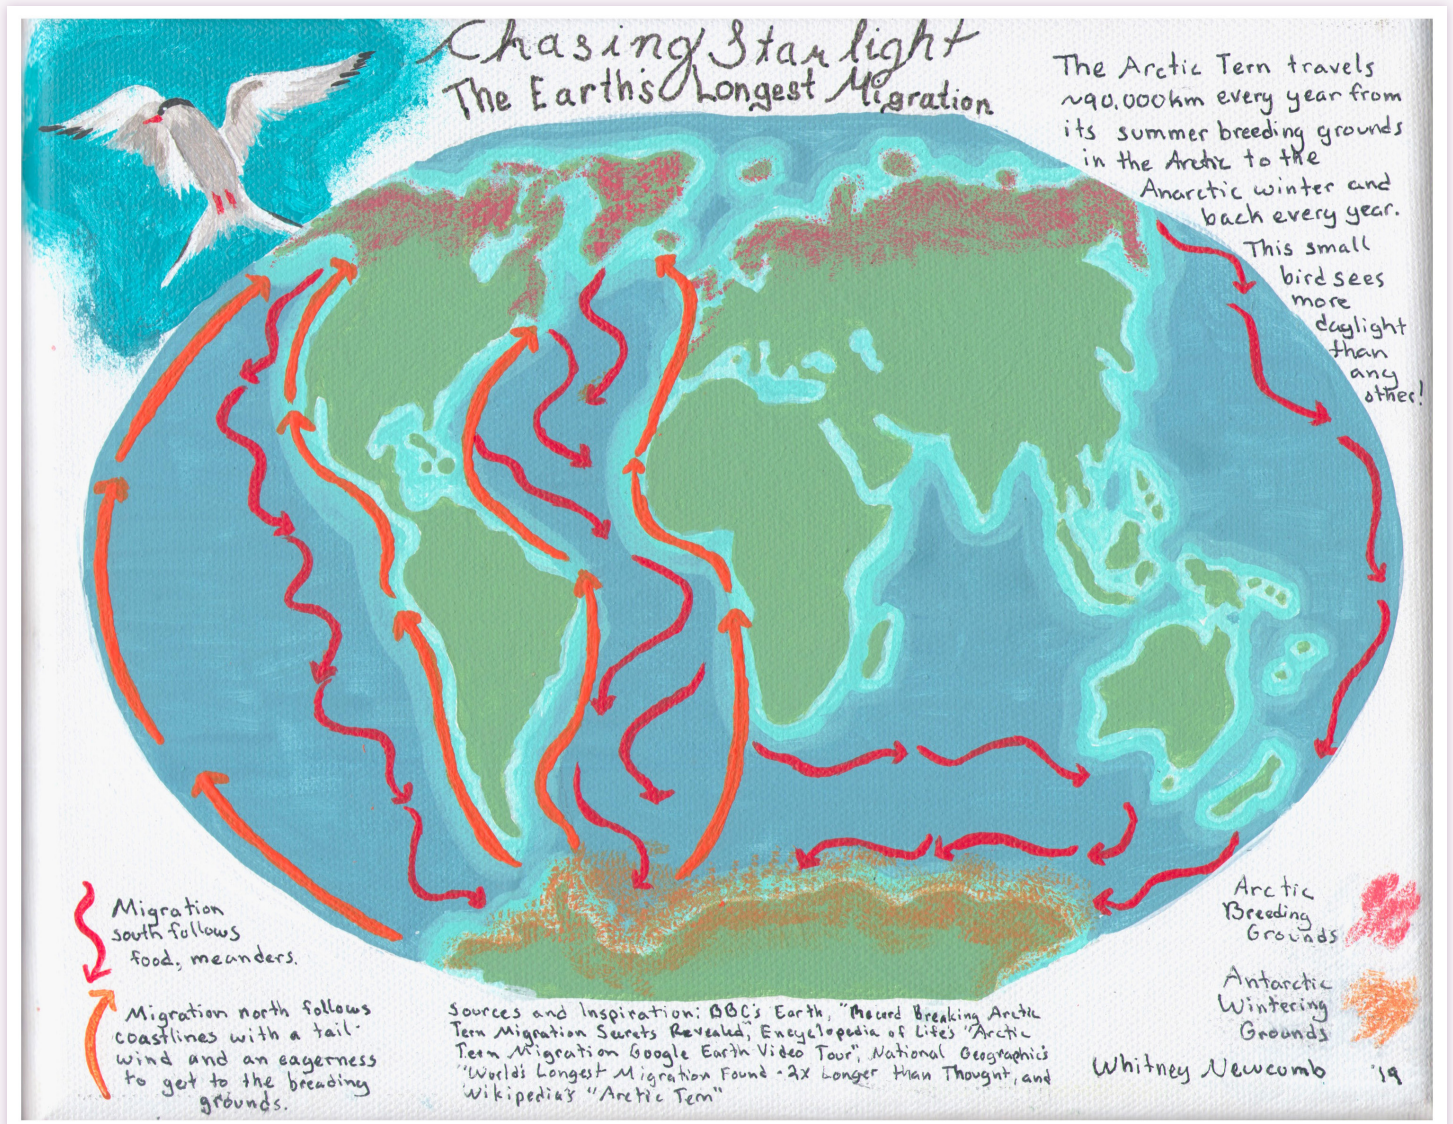 Chasing Starlight
The Earth's Longest Migration
The Arctic Tern travels
~90,000km every year from
its summer breeding grounds
in the Arctic to the
Anarctic winter and
back every year.
This small
bird sees
more
daylight
than
any
other!
Migration
south follows
food, meanders.
Migration north follows
coastlines with a tail-
wind and an eagerness
to get to the breading
grounds.
Sources and Inspiration: BBC's Earth, "Record Breaking Arctic
Tern Migration Secrets Revealed", Encyclopedia of Life's "Arctic
Tern Migration Google Earth Video Tour", National Geographic's
"World's Longest Migration Found - 2x Longer than Thought, and
Wikipedia's "Arctic Tern"
Arctic
Breeding
Grounds
Antarctic
Wintering
Grounds
Whitney Newcomb '19